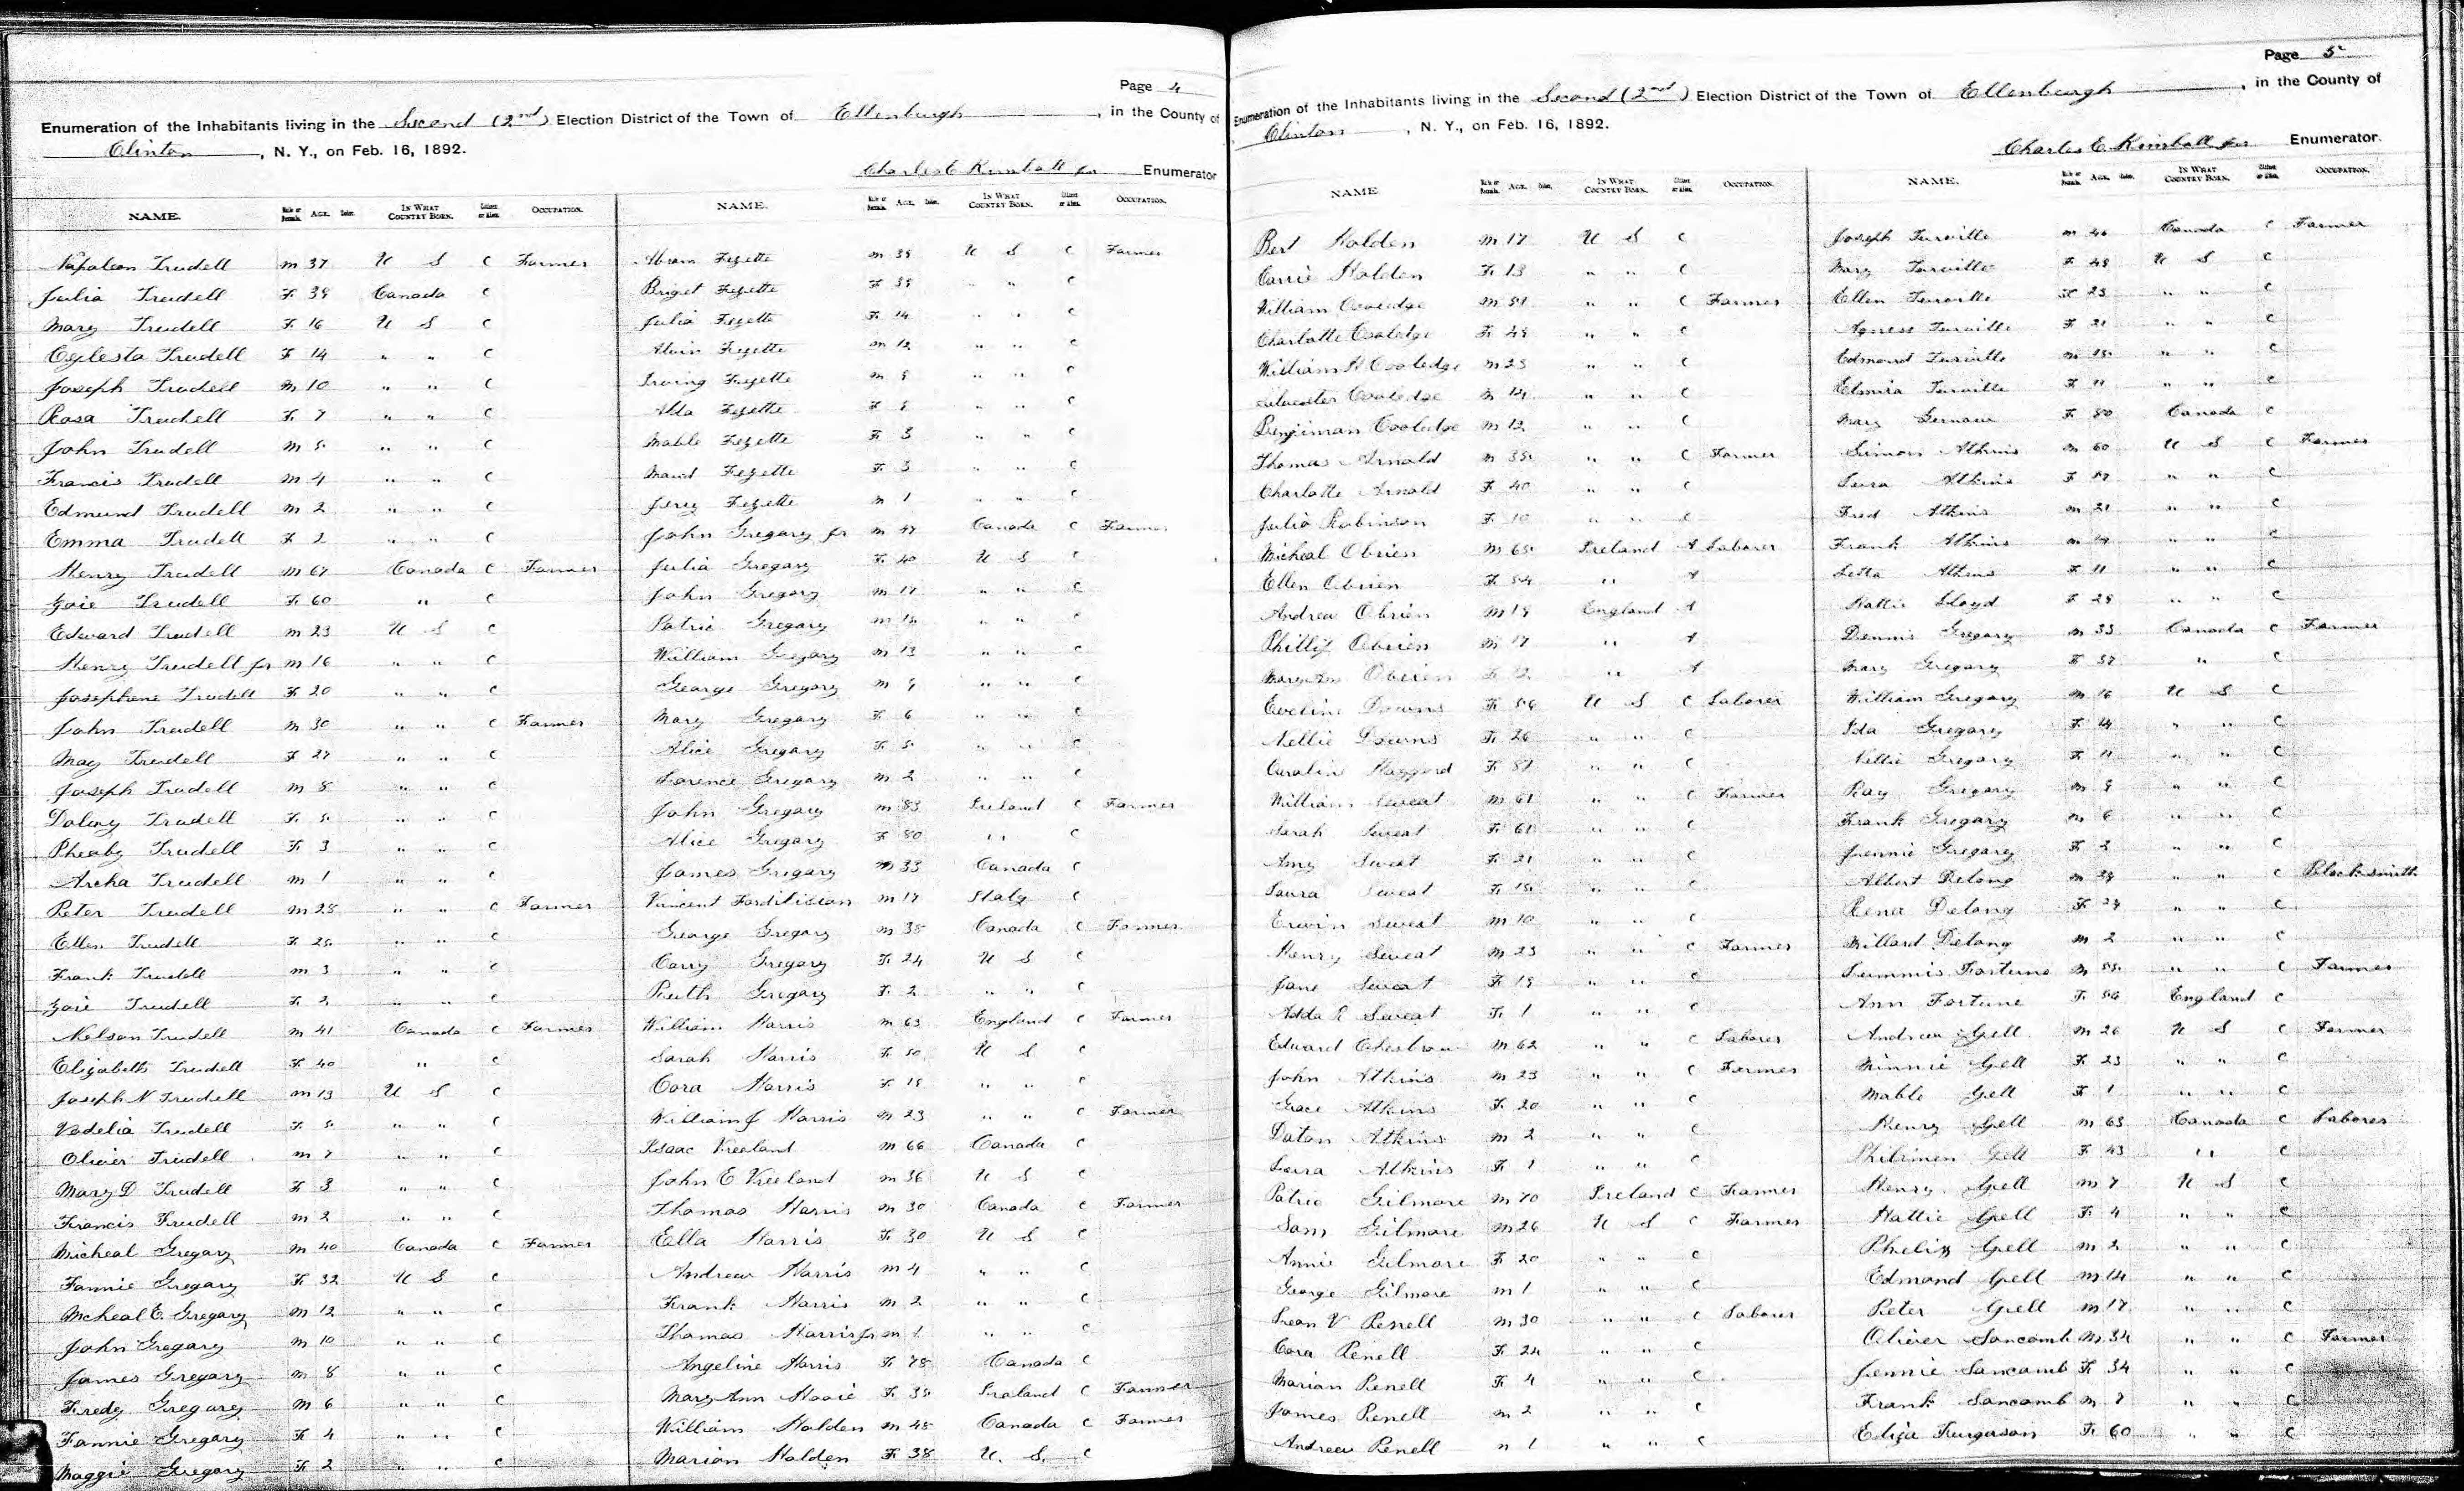 Page 4
Enumeration of the Inhabitants living in the Second (2nd) Election District of the Town of Ellenburgh, in the County of
Clinton, N. Y., on Feb. 16, 1892.
Charles E Kimball jr Enumerator
NAME. Male or Female. AGE. Color. IN WHAT COUNTRY BORN. Citizen or Alien. OCCUPATION.
Napoleon Trudell m 37 U S C Farmer
Julia Trudell F. 39 Canada C
Mary Trudell F. 16 U S C
Trudell F 14 " " C
Joseph Trudell m 10 " " C
Rosa Trudell F. 7 " " C
John Trudell m " " C
Francis Trudell m 4 " " C
Edmund Trudell m 2 " " C
Emma Trudell F 2 " " C
Henry Trudell m 67 Canada C Farmer
Zoie Trudell F. 60 " C
Edward Trudell m 23 U S C
Henry Trudell jr m 16 " " C
Josephene Trudell F 20 " " C
John Trudell m 30 " " C Farmer
May Trudell F 27 " " C
Joseph Trudell m 8 " " C
Trudell F. " " C
Pheaby Trudell F. 3 " " C
Archa Trudell m 1 " " C
Peter Trudell m 28 " " C Farmer
Ellen Trudell F. 25 " " C
Frank Trudell m 3 " " C
Zoie Trudell F. 2 " " C
Nelson Trudell m 41 Canada C Farmer
Elizabeth Trudell F. 40 " C
Joseph N Trudell m 13 U S C
Trudell F. " " C
Oliver Trudell m 7 " " C
Mary D Trudell F 3 " " C
Francis Trudell m 2 " " C
Micheal Gregary m 40 Canada C Farmer
Fannie Gregary F. 32 U S C
Micheal E. Gregary m 12 " " C
John Gregary m 10 " " C
James Gregary m 8 " " C
Fredy Gregary m 6 " " C
Fannie Gregary F 4 " " C
Maggie Gregary F. 2 " " C
NAME. Male or Female. AGE. Color. IN WHAT COUNTRY BORN. Citizen or Alien. OCCUPATION.
Abram Fezette m U S C Farmer
Briget Fezette F " " C
Julia Fezette F. 14 " " C
Alvin Fezette m 12 " " C
Irving Fezette m 9 " " C
Alda Fezette F " " C
Mable Fezette F. 3 " " C
Maud Fezette F. 3 " " C
Fezette m 1 " " C
John Gregary jr m 47 Canada C Farmer
Julia Gregary F. 40 U S C
John Gregary m 17 " " C
Patric Gregary m " " C
William Gregary m 13 " " C
George Gregary m 9 " " C
Mary Gregary F. 6 " " C
Alice Gregary F. 5 " " C
Gregary m 2 " " C
John Gregary m 83 Ireland C Farmer
Alice Gregary F 80 " C
James Gregary m 33 Canada C
Vincent m 17 Italy C
George Gregary m 38 Canada C Farmer
Carry Gregary F. 24 U S C
Ruth Gregary F. 2 " " C
William Harris m 63 England C Farmer
Sarah Harris F. 50 U S C
Cora Harris F. 18 " " C
William J Harris m 23 " " C Farmer
Isaac Vreeland m 66 Canada C
John E Vreeland m 36 U S C
Thomas Harris m 30 Canada C Farmer
Ella Harris F. 30 U S C
Andrew Harris m 4 " " C
Frank Harris m 2 " " C
Thomas Harris jr m 1 " " C
Angeline Harris F. 78 Canada C
Mary Ann F. Ireland C Farmer
William Halden m 48 Canada C Farmer
Marian Halden F. 38 U. S. C
Page 5
Enumeration of the Inhabitants living in the Second (2nd) Election District of the Town of Ellenburgh, in the County of
Clinton, N. Y., on Feb. 16, 1892.
Charles E. Kimball jr Enumerator.
NAME. Male or Female. AGE. Color. IN WHAT COUNTRY BORN. Citizen or Alien. OCCUPATION.
Bert Halden m 17 U S C
Carrie Halden F. 13 " " C
William Cooledge m 51 " " C Farmer
Charlotte Cooledge F. 49 " " C
William H Cooledge m 23 " " C
Silvester Cooledge m 14 " " C
Benjiman Cooledge m 12 " " C
Thomas Arnald m 35 " " C Farmer
Charlotte Arnald F 40 " " C
Julia Robinson F. 10 " " C
Micheal Obrien m 65 Ireland A Laborer
Ellen Obrien F. 54 " A
Andrew Obrien m 19 England A
Phillip Obrien m 17 " A
Mary Ann Obrien F. 12 " A
Eveline Downs F. 56 U S C Laborer
Nellie Downs F. 26 " " C
Caroline Haggard F. 87 " " C
William Sweat m 61 " " C Farmer
Sarah Sweat F. 61 " " C
Amy Sweat F. 21 " " C
Laura Sweat F. 15 " " C
Erwin Sweat m 10 " " C
Henry Sweat m 23 " " C Farmer
Jane Sweat F. 19 " " C
Adda R Sweat F. 1 " " C
Edward m 62 " " C Laborer
John Atkins m 23 " " C Farmer
Grace Atkins F. 20 " " C
Daton Atkins m 2 " " C
Atkins F. 1 " " C
Patric Gilmore m 70 Ireland C Farmer
Sam Gilmore m 26 U S C Farmer
Annie Gilmore F. 20 " " C
George Gilmore m 1 " " C
V Renell m 30 " " C Laborer
Cora Renell F. 24 " " C
Marian Renell F. 4 " " C
James Renell m 2 " " C
Andrew Renell m 1 " " C
NAME. Male or Female. AGE. Color. IN WHAT COUNTRY BORN. Citizen or Alien. OCCUPATION.
Joseph Turville m 46 Canada C Farmer
Mary Turville F. 48 U S C
Ellen Turville F 23 " " C
Agness Turville F 21 " " C
Edmond Turville m 15 " " C
Elmira Turville F 11 " " C
Mary F. 80 Canada C
Simon Atkins m 60 U S C Farmer
Atkins F 57 " " C
Fred Atkins m 21 " " C
Frank Atkins m " " C
Letta Atkins F. 11 " " C
Hattie Lloyd F " " C
Dennis Gregary m 35 Canada C Farmer
Mary Gregary F 37 " C
William Gregary m 16 U S C
Ida Gregary F. 14 " " C
Nellie Gregary F. 11 " " C
Ray Gregary m 9 " " C
Frank Gregary m 6 " " C
Jennie Gregary F. 2 " " C
Albert Delong m 29 " " C Blacksmith
Rena Delong F. 24 " " C
Millard Delong m 2 " " C
Fortune m 55 " " C Farmer
Ann Fortune F. 56 England C
Andrew Gell m 26 U S C Farmer
Minnie Gell F. 23 " " C
Mable Gell F 1 " " C
Henry Gell m 63 Canada C Laborer
Philimen Gell F. 43 " C
Henry Gell m 7 U S C
Hattie Gell F. 4 " " C
Gell m 2 " " C
Edmond Gell m 14 " " C
Peter Gell m 17 " " C
Oliver Sancomb m 34 " " C Farmer
Jennie Sancomb F. 34 " " C
Frank Sancomb m 7 " " C
Eliza Furgason F. 60 " " C